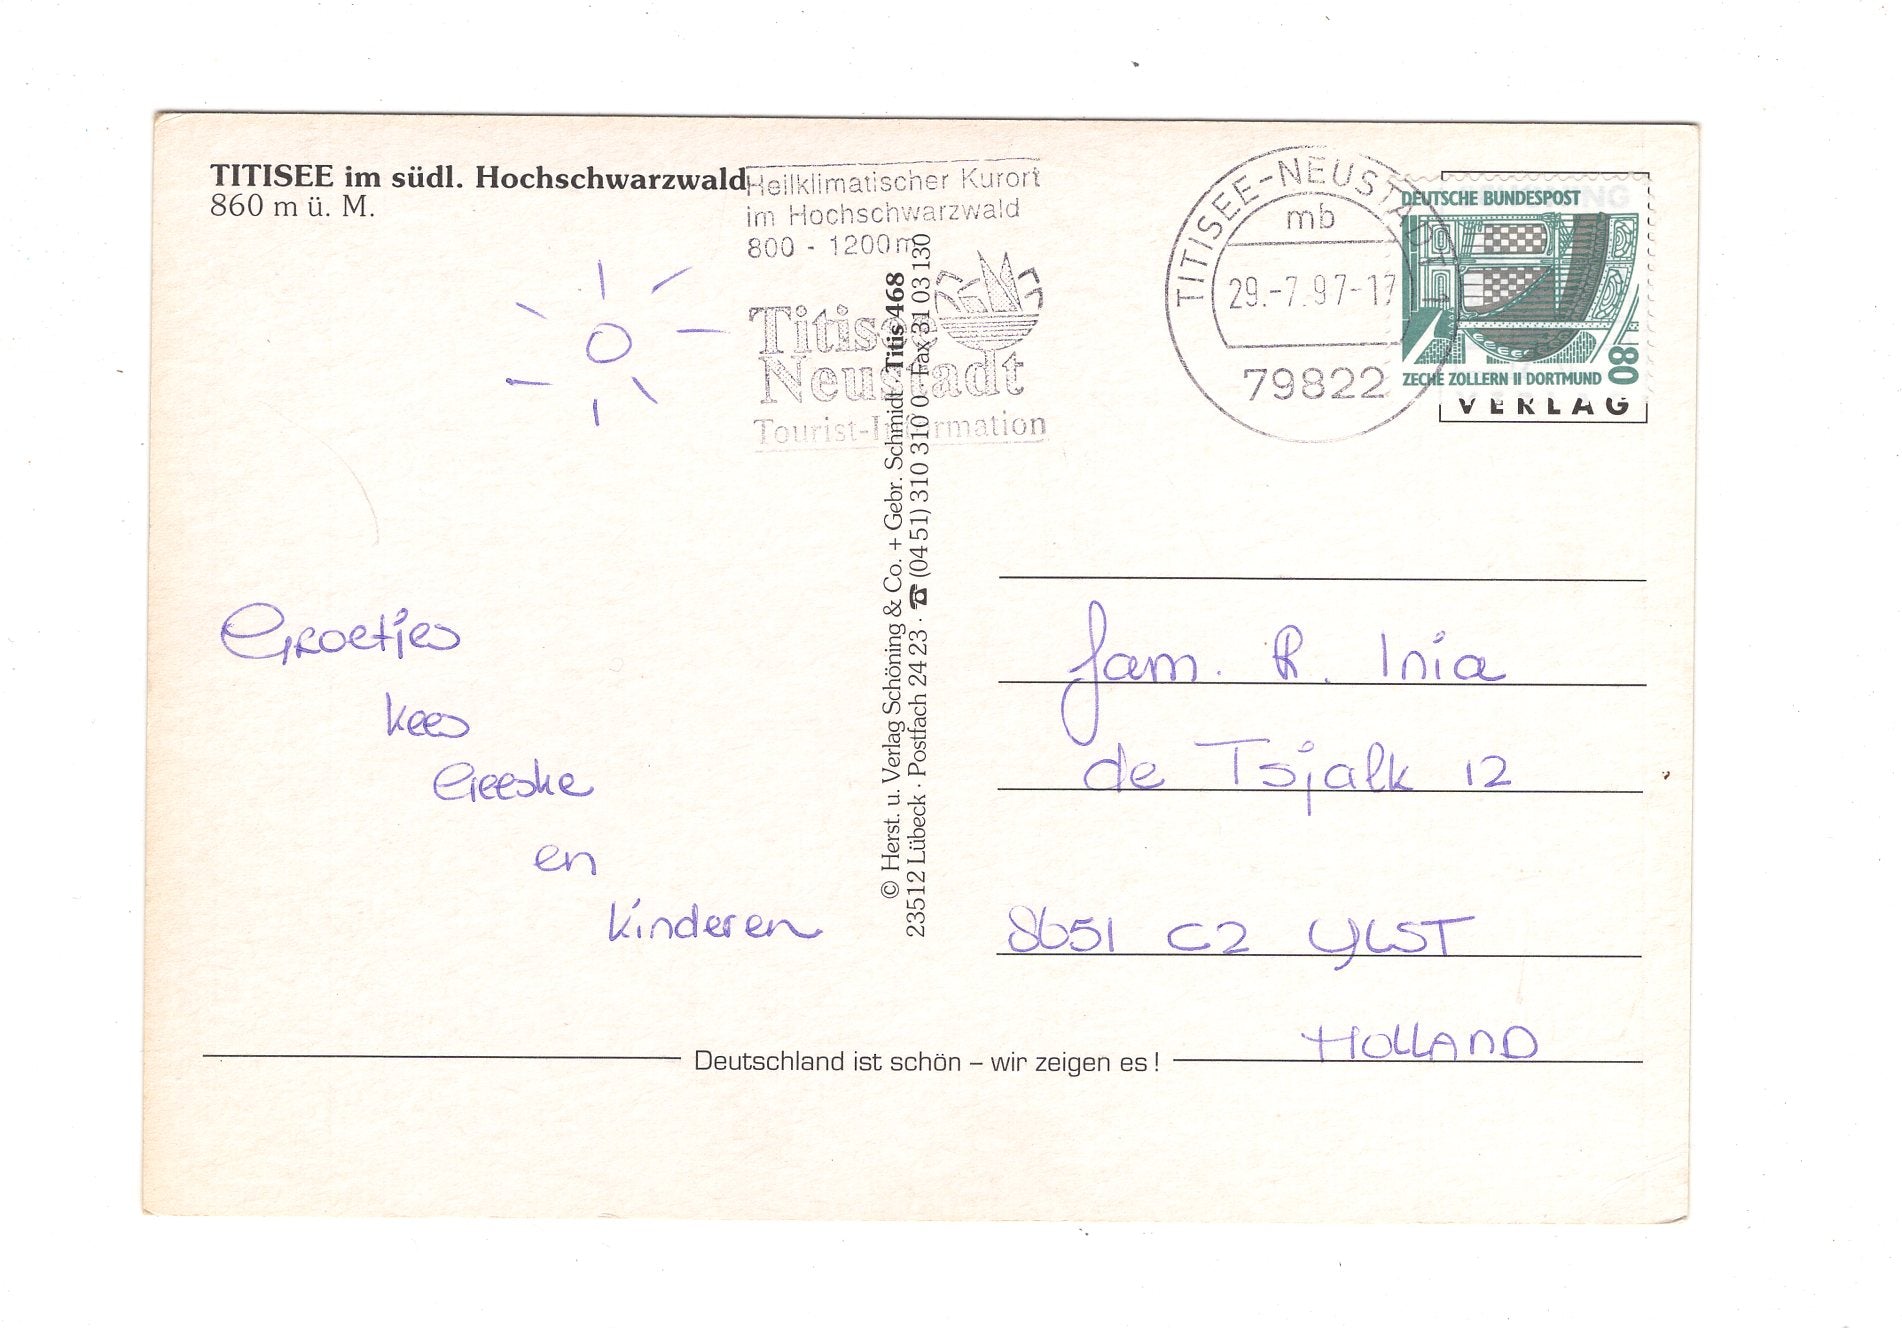 TITISEE im südl. Hochschwarzwald
860 m ü. M.
Heilklimatischer Kurort
im Hochschwarzwald
800 - 1200m
Titisee
Neustadt
Tourist-Information
TITISEE-NEUSTADT 1
mb
29.-7.97-17
79822
DEUTSCHE BUNDESPOST
80
ZECHE ZOLLERN II DORTMUND
VERLAG
© Herst. u. Verlag Schöning & Co. + Gebr. Schmidt · Titis 468
23512 Lübeck · Postfach 24 23 · ☎ (04 51) 310 310 0 · Fax 31 03 130
Groetjes
Kees
Geeske
en
Kinderen
fam. R. Inia
de Tsjalk 12
8651 CZ YLST
HOLLAND
Deutschland ist schön – wir zeigen es !